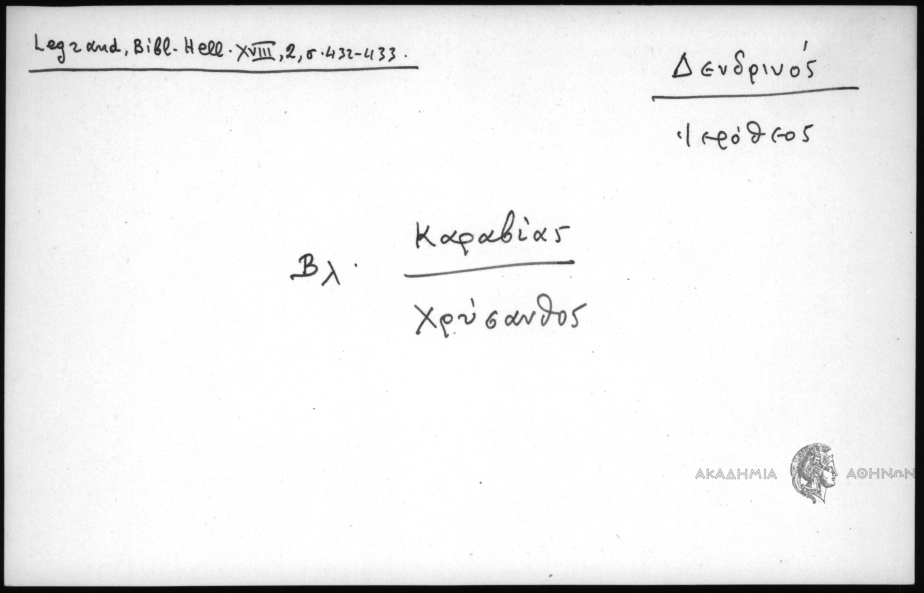 Legrand, Bibl. Hell. XVIII, 2, σ. 432-433.
Δενδρινός
Ἱερόθεος
Βλ. Καραβίας
Χρύσανθος
ΑΚΑΔΗΜΙΑ ΑΘΗΝΩΝ